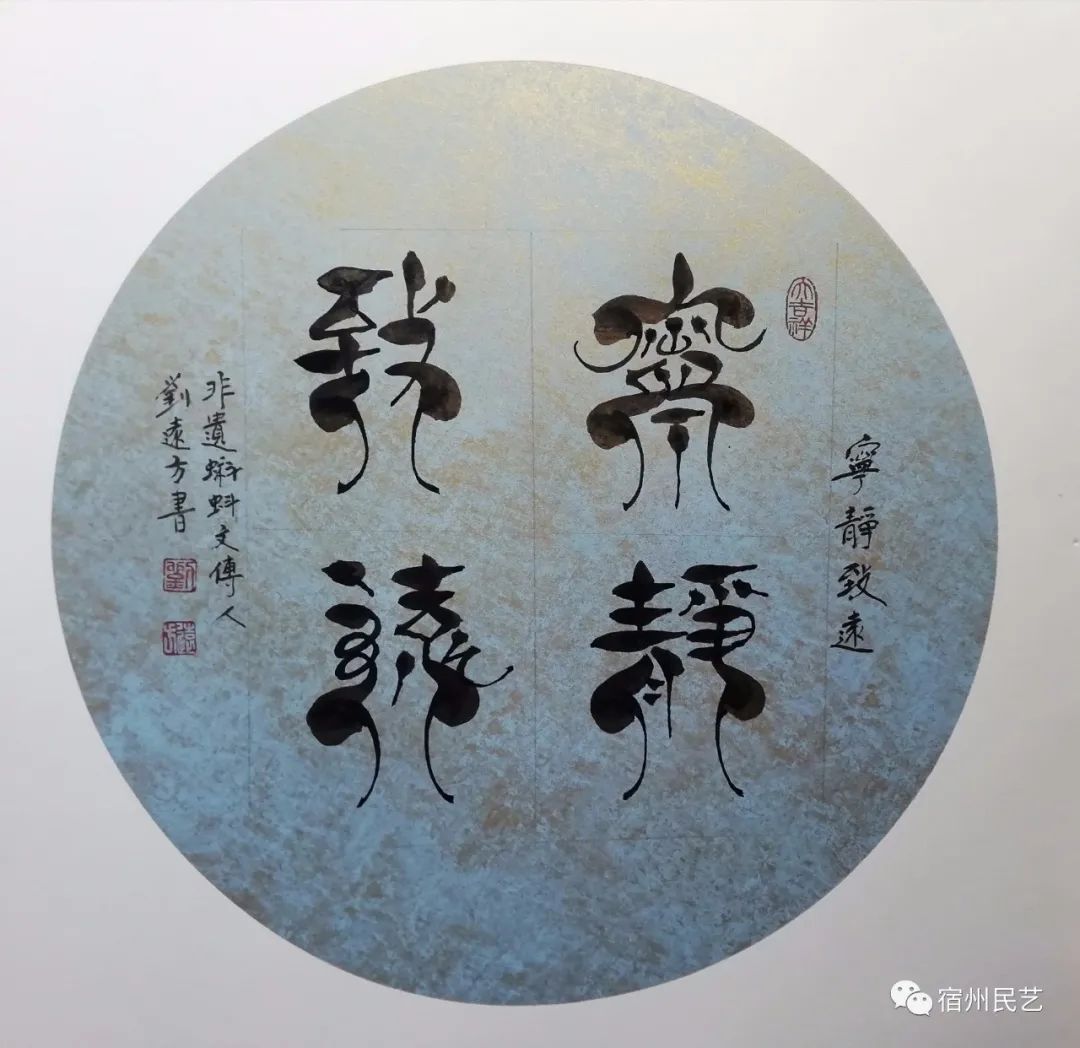 大吉祥
寧靜致遠
寧靜
致遠
非遺蝌蚪文傳人
劉遠方書
劉
遠方
宿州民艺